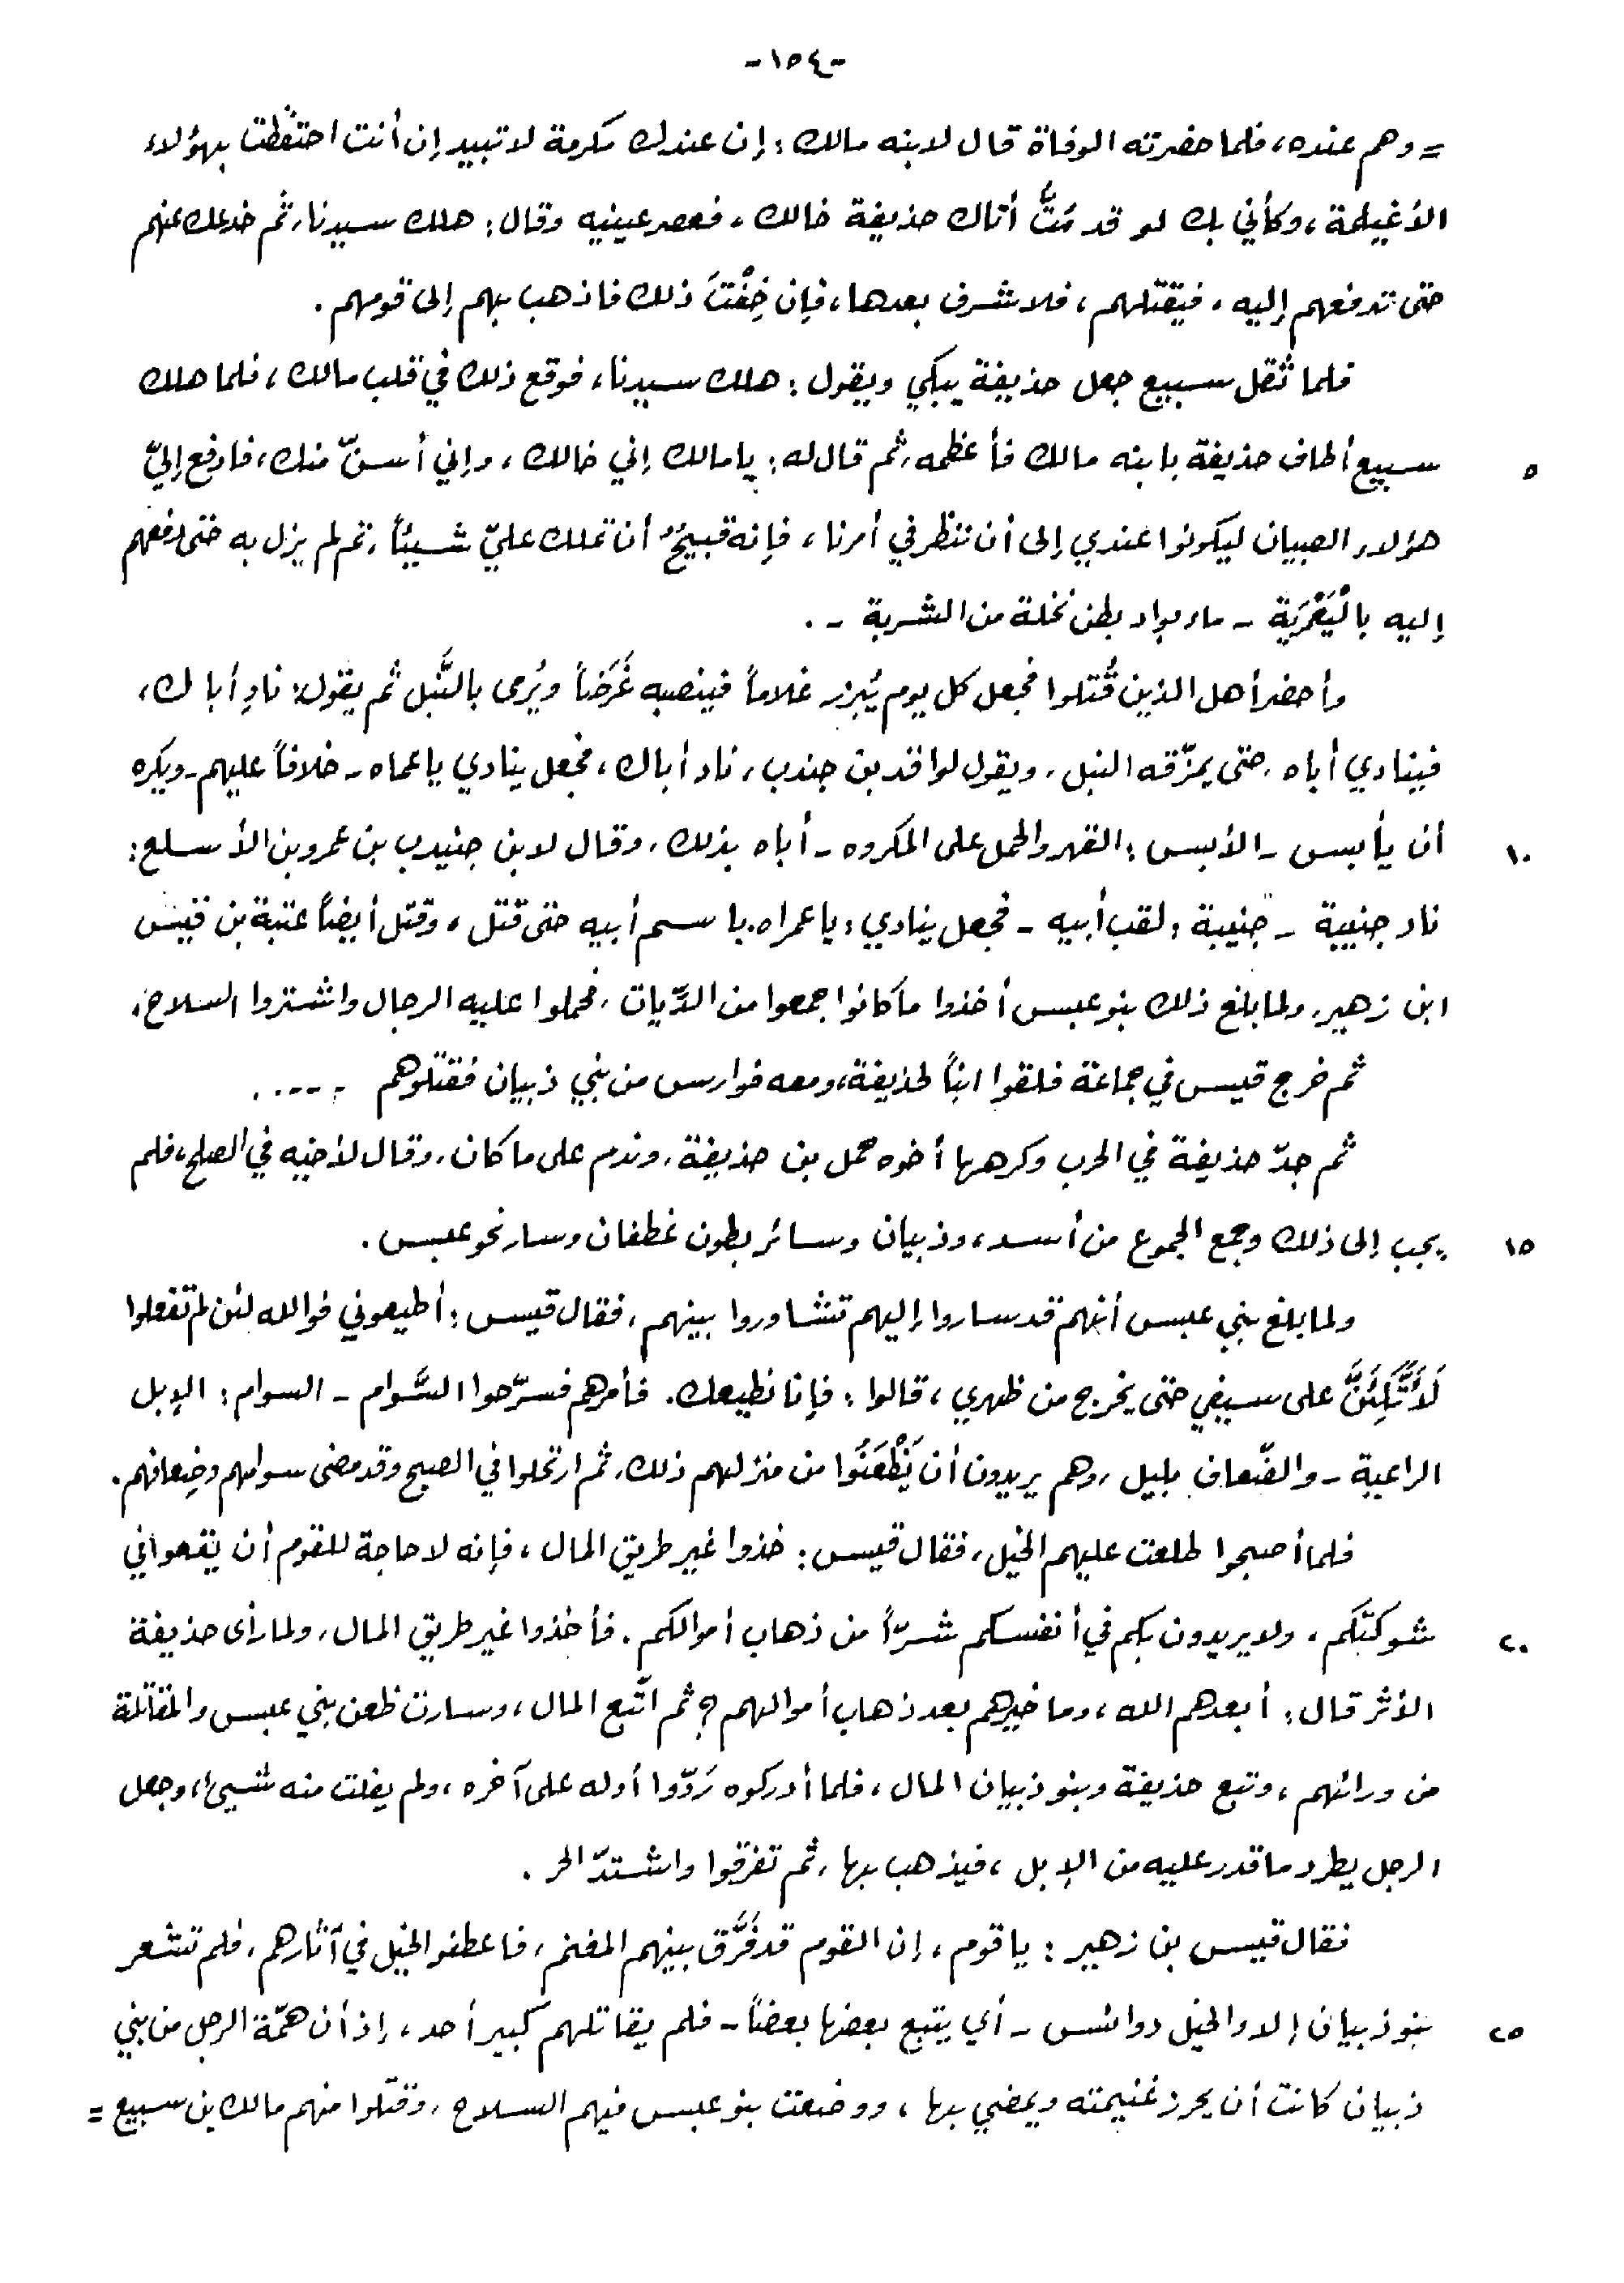 -١٥٤-
= وهم عنده، فلما حضرته الوفاة قال لابنه مالك: إن عندك مكرمة لا تبيد إن أنت احتفظت بهؤلاء
الأغيلمة، وكأني بك لو قد مُتُّ أتاك حذيفة خالك، فعصر عينيه وقال: هلك سيدنا، ثم خدعك عنهم
حتى تدفعهم إليه، فيقتلهم، فلا شرف بعدها، فإن خِفْتَ ذلك فاذهب بهم إلى قومهم.
فلما ثقل سبيع جعل حذيفة يبكي ويقول: هلك سيدنا، فوقع ذلك في قلب مالك، فلما هلك
سبيع أطاف حذيفة بابنه مالك فأعظمه، ثم قال له: يا مالك إني خالك، وإني أسنّ منك، فادفع إليّ
٥
هؤلاء الصبيان ليكونوا عندي إلى أن ننظر في أمرنا، فإنه قبيحٌ أن تملك عليّ شيئاً، ثم لم يزل به حتى دفعهم
إليه باليَعْمَرَية - ماء بواد بطن نخلة من الشربة -.
وأحضر أهل الذين قُتلوا فجعل كل يوم يُبرز غلاماً فينصبه غَرَضاً ويُرمى بالنَّبل ثم يقول: نادِ أباك،
فينادي أباه، حتى يمزّقه النبل، ويقول لواقد بن جندب، ناد أباك، فجعل ينادي يا عماه - خلافاً عليهم - ويكره
أن يأبس - الأبس: القهر والحمل على المكروه - أباه بذلك، وقال لابن جنيدب بن عمرو بن الأسلع:
١٠
ناد جنيبة - جنيبة: لقب أبيه - فجعل ينادي: يا عمراه، باسم أبيه حتى قتل، وقتل أيضاً عتبة بن قيس
ابن زهير، ولما بلغ ذلك بنو عبس أخذوا ما كانوا جمعوا من الدِّيات، فحملوا عليه الرجال واشتروا السلاح،
ثم خرج قيس في جماعة فلقوا ابناً لحذيفة، ومعه فوارس من بني ذبيان فقتلوهم .....
ثم جدّ حذيفة في الحرب وكرهها أخوه حمل بن حذيفة، وندم على ما كان، وقال لأخيه في الصلح، فلم
يجب إلى ذلك وجمع الجموع من أسد، وذبيان وسائر بطون غطفان وسار نحو عبس.
١٥
ولما بلغ بني عبس أنهم قد ساروا إليهم تشاوروا بينهم، فقال قيس: أطيعوني فوالله لئن لم تفعلوا
لَأَتَّكِئَنَّ على سيفي حتى يخرج من ظهري، قالوا: فإنا نطيعك. فأمرهم فسرّحوا السَّوام - السوام: الإبل
الراعية - والضّعاف بليل، وهم يريدون أن يَظْعَنُوا من منزلهم ذلك، ثم ارتحلوا في الصبح وقد مضى سوامهم وضِعافهم.
فلما أصبحوا طلعت عليهم الخيل، فقال قيس: خذوا غير طريق المال، فإنه لا حاجة للقوم أن يقعوا في
شوكتكم، ولا يريدون بكم في أنفسكم شرّاً من ذهاب أموالكم. فأخذوا غير طريق المال، ولما رأى حذيفة
٢٠
الأثر قال: أبعدهم الله، وما خيرهم بعد ذهاب أموالهم؟ ثم اتّبع المال، وسارت ظعن بني عبس والمقاتلة
من ورائهم، وتبع حذيفة وبنو ذبيان المال، فلما أدركوه رَدّوا أوله على آخره، ولم يفلت منه شيئ، وجعل
الرجل يطرد ما قدر عليه من الإبل، فيذهب بها، ثم تفرقوا واشتدّ الحر.
فقال قيس بن زهير: يا قوم، إن القوم قد فَرَّق بينهم المغنم، فاعطفوا الخيل في آثارهم، فلم تشعر
بنو ذبيان إلا والخيل دوائس - أي يتبع بعضها بعضاً - فلم يقاتلهم كبير أحد، إذ أن همّة الرجل من بني
٢٥
ذبيان كانت أن يحرز غنيمته ويمضي بها، ووضعت بنو عبس فيهم السلاح، وقتلوا منهم مالك بن سبيع =